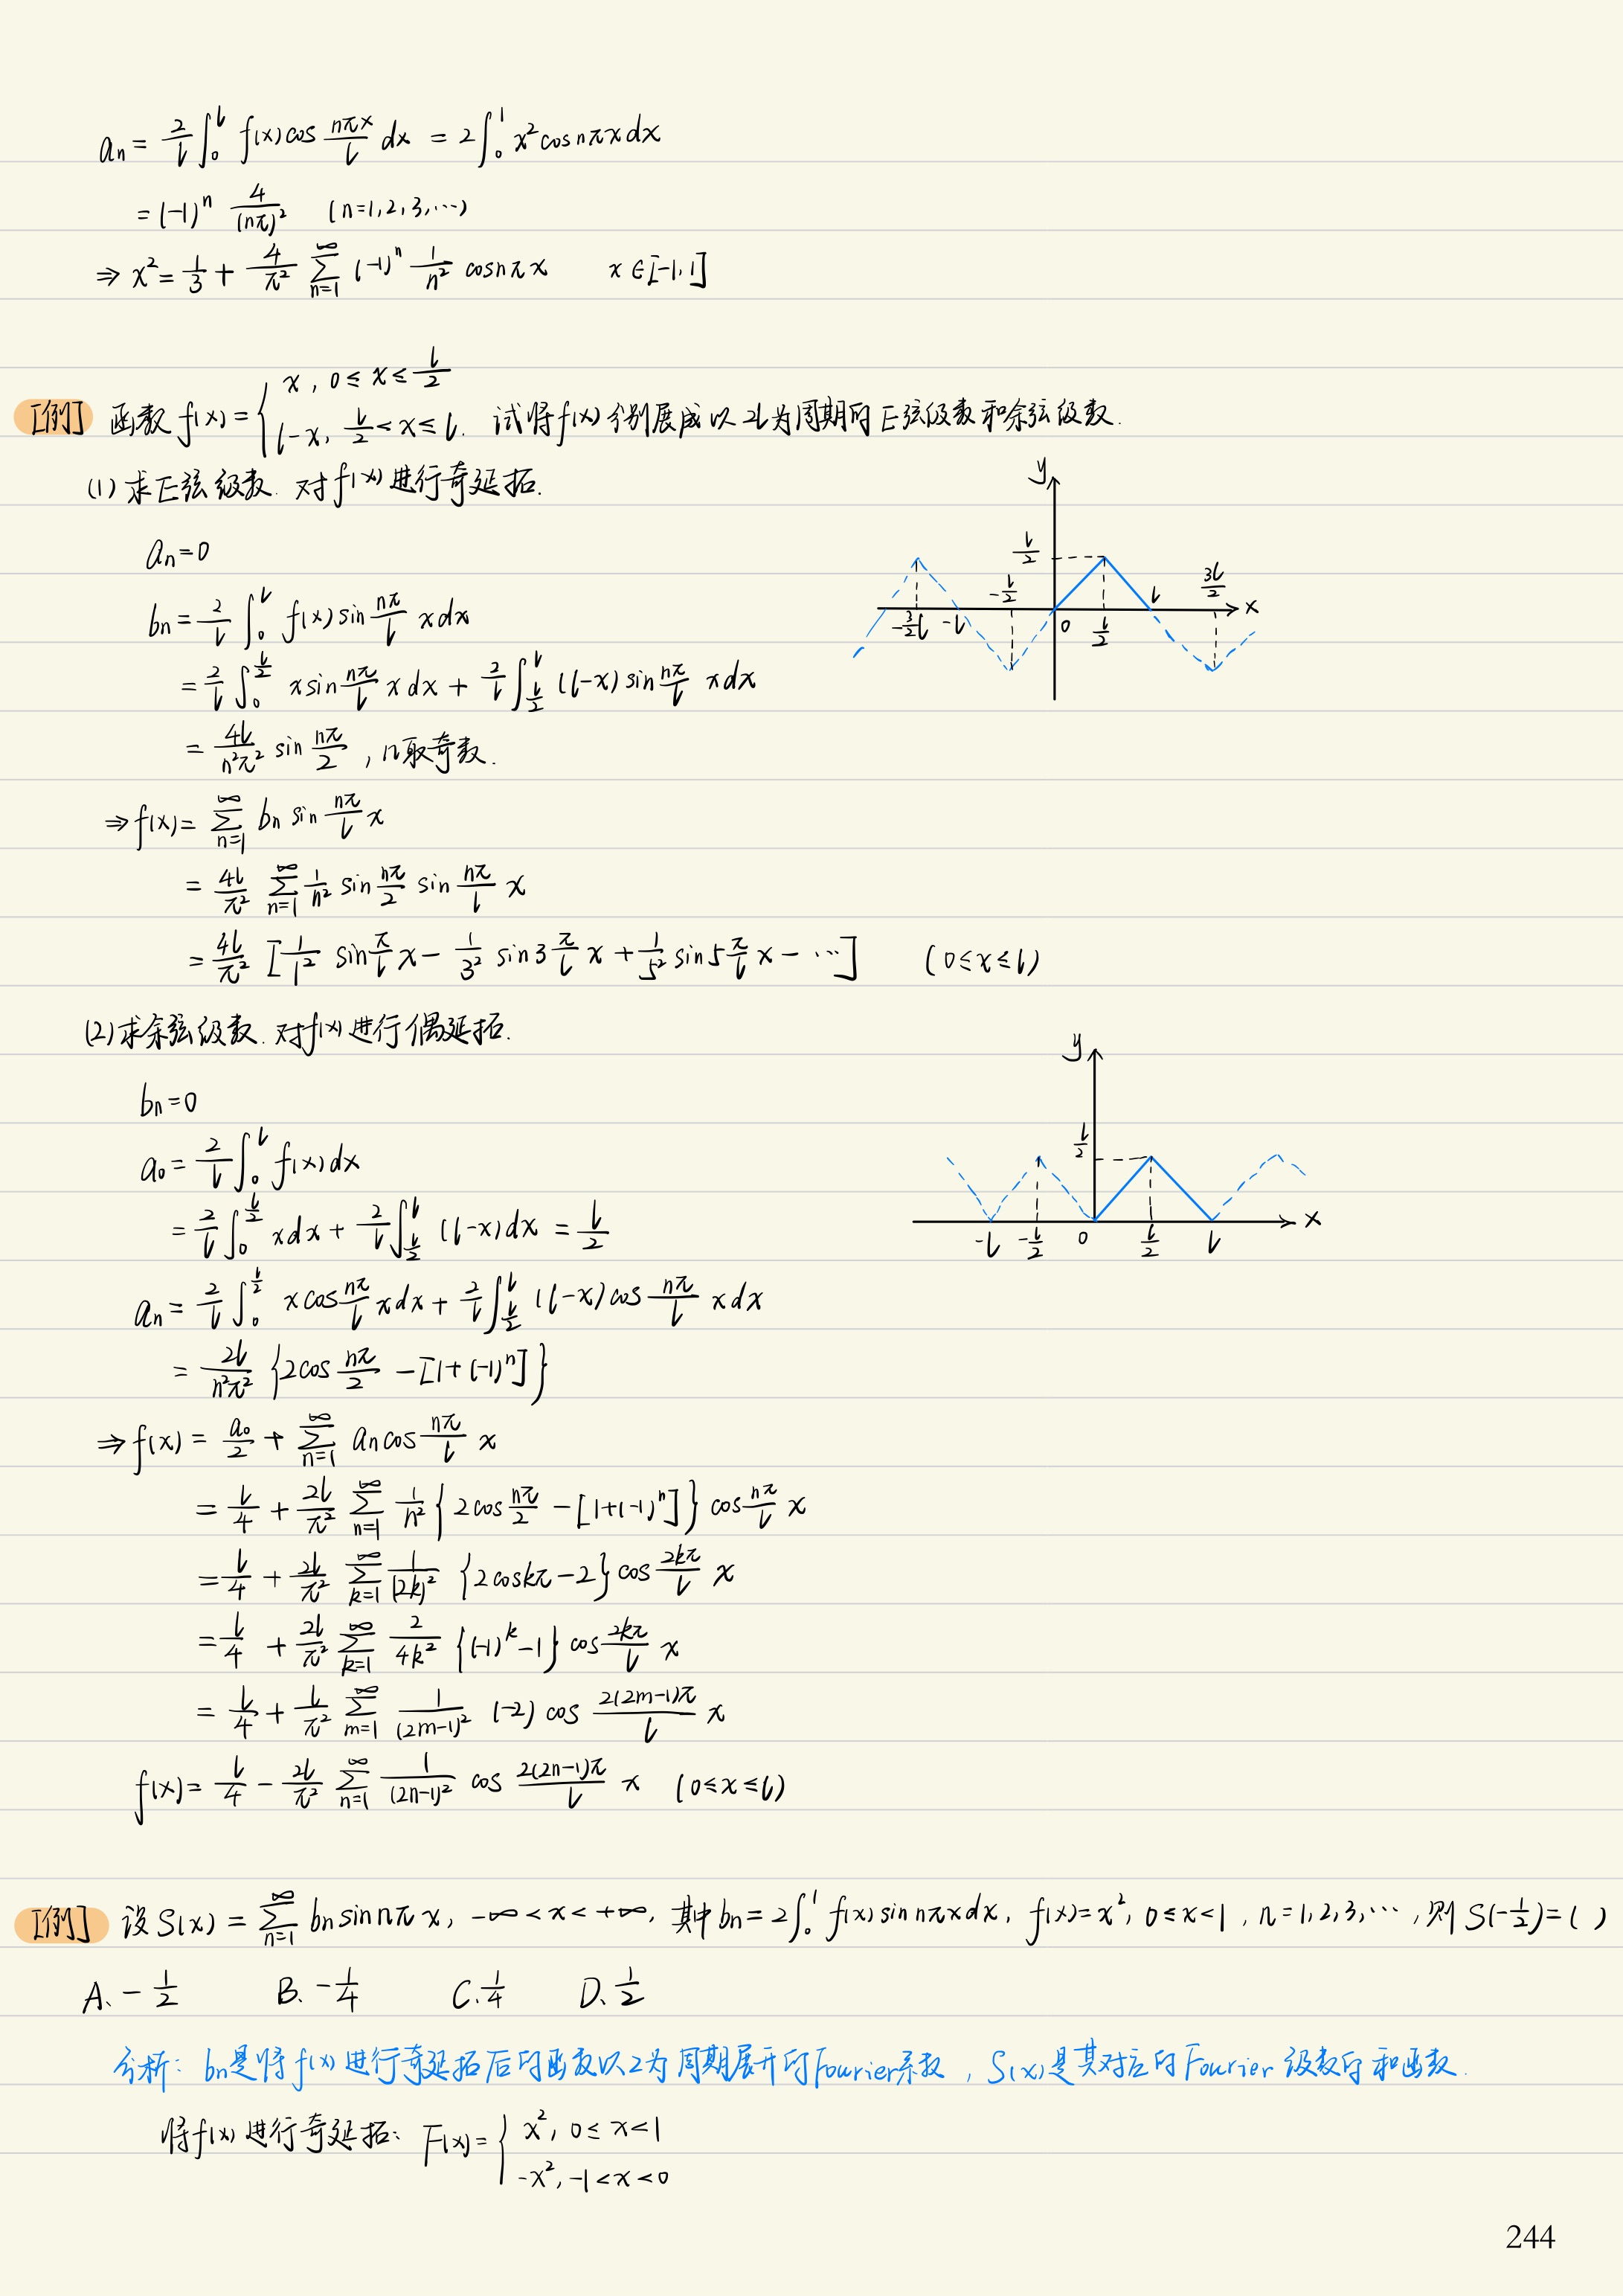 aₙ = 2/l ∫₀ˡ f(x)cos nπx/l dx = 2∫₀¹ x²cosnπx dx
= (-1)ⁿ 4/(nπ)² (n=1,2,3,⋯)
⇒ x² = 1/3 + 4/π² ∑_{n=1}^{∞} (-1)ⁿ 1/n² cosnπx x∈[-1,1]
[例] 函数 f(x) = { x, 0≤x≤l/2; l-x, l/2<x≤l. 试将f(x)分别展成以2l为周期的正弦级数和余弦级数.
(1) 求正弦级数. 对f(x)进行奇延拓.
aₙ=0
bₙ = 2/l ∫₀ˡ f(x) sin nπ/l x dx
= 2/l ∫₀^{l/2} x sin nπ/l x dx + 2/l ∫_{l/2}^{l} (l-x) sin nπ/l x dx
= 4l/n²π² sin nπ/2, n取奇数.
⇒ f(x) = ∑_{n=1}^{∞} bₙ sin nπ/l x
= 4l/π² ∑_{n=1}^{∞} 1/n² sin nπ/2 sin nπ/l x
= 4l/π² [1/1² sin π/l x - 1/3² sin3 π/l x + 1/5² sin5 π/l x - ⋯] (0≤x≤l)
y
l/2
-l/2
3l/2
-3/2 l
-l
0
l/2
l
x
(2) 求余弦级数. 对f(x)进行偶延拓.
bₙ=0
a₀ = 2/l ∫₀ˡ f(x)dx
= 2/l ∫₀^{l/2} x dx + 2/l ∫_{l/2}^{l} (l-x)dx = l/2
aₙ = 2/l ∫₀^{l/2} x cos nπ/l x dx + 2/l ∫_{l/2}^{l} (l-x)cos nπ/l x dx
= 2l/n²π² {2cos nπ/2 - [1+(-1)ⁿ]}
⇒ f(x) = a₀/2 + ∑_{n=1}^{∞} aₙcos nπ/l x
= l/4 + 2l/π² ∑_{n=1}^{∞} 1/n² {2cos nπ/2 - [1+(-1)ⁿ]} cos nπ/l x
= l/4 + 2l/π² ∑_{k=1}^{∞} 1/(2k)² {2coskπ-2} cos 2kπ/l x
= l/4 + 2l/π² ∑_{k=1}^{∞} 2/4k² {(-1)ᵏ-1} cos 2kπ/l x
= l/4 + l/π² ∑_{m=1}^{∞} 1/(2m-1)² (-2) cos 2(2m-1)π/l x
f(x) = l/4 - 2l/π² ∑_{n=1}^{∞} 1/(2n-1)² cos 2(2n-1)π/l x (0≤x≤l)
y
l/2
-l
-l/2
0
l/2
l
x
[例] 设 S(x) = ∑_{n=1}^{∞} bₙ sin nπx, -∞<x<+∞, 其中 bₙ = 2∫₀¹ f(x) sin nπx dx, f(x)=x², 0≤x<1, n=1,2,3,⋯, 则 S(-1/2)=( )
A、-1/2 B、-1/4 C、1/4 D、1/2
分析: bₙ是将f(x)进行奇延拓后的函数以2为周期展开的Fourier系数, S(x)是其对应的Fourier级数的和函数.
将f(x)进行奇延拓: F(x) = { x², 0≤x<1; -x², -1<x<0
244